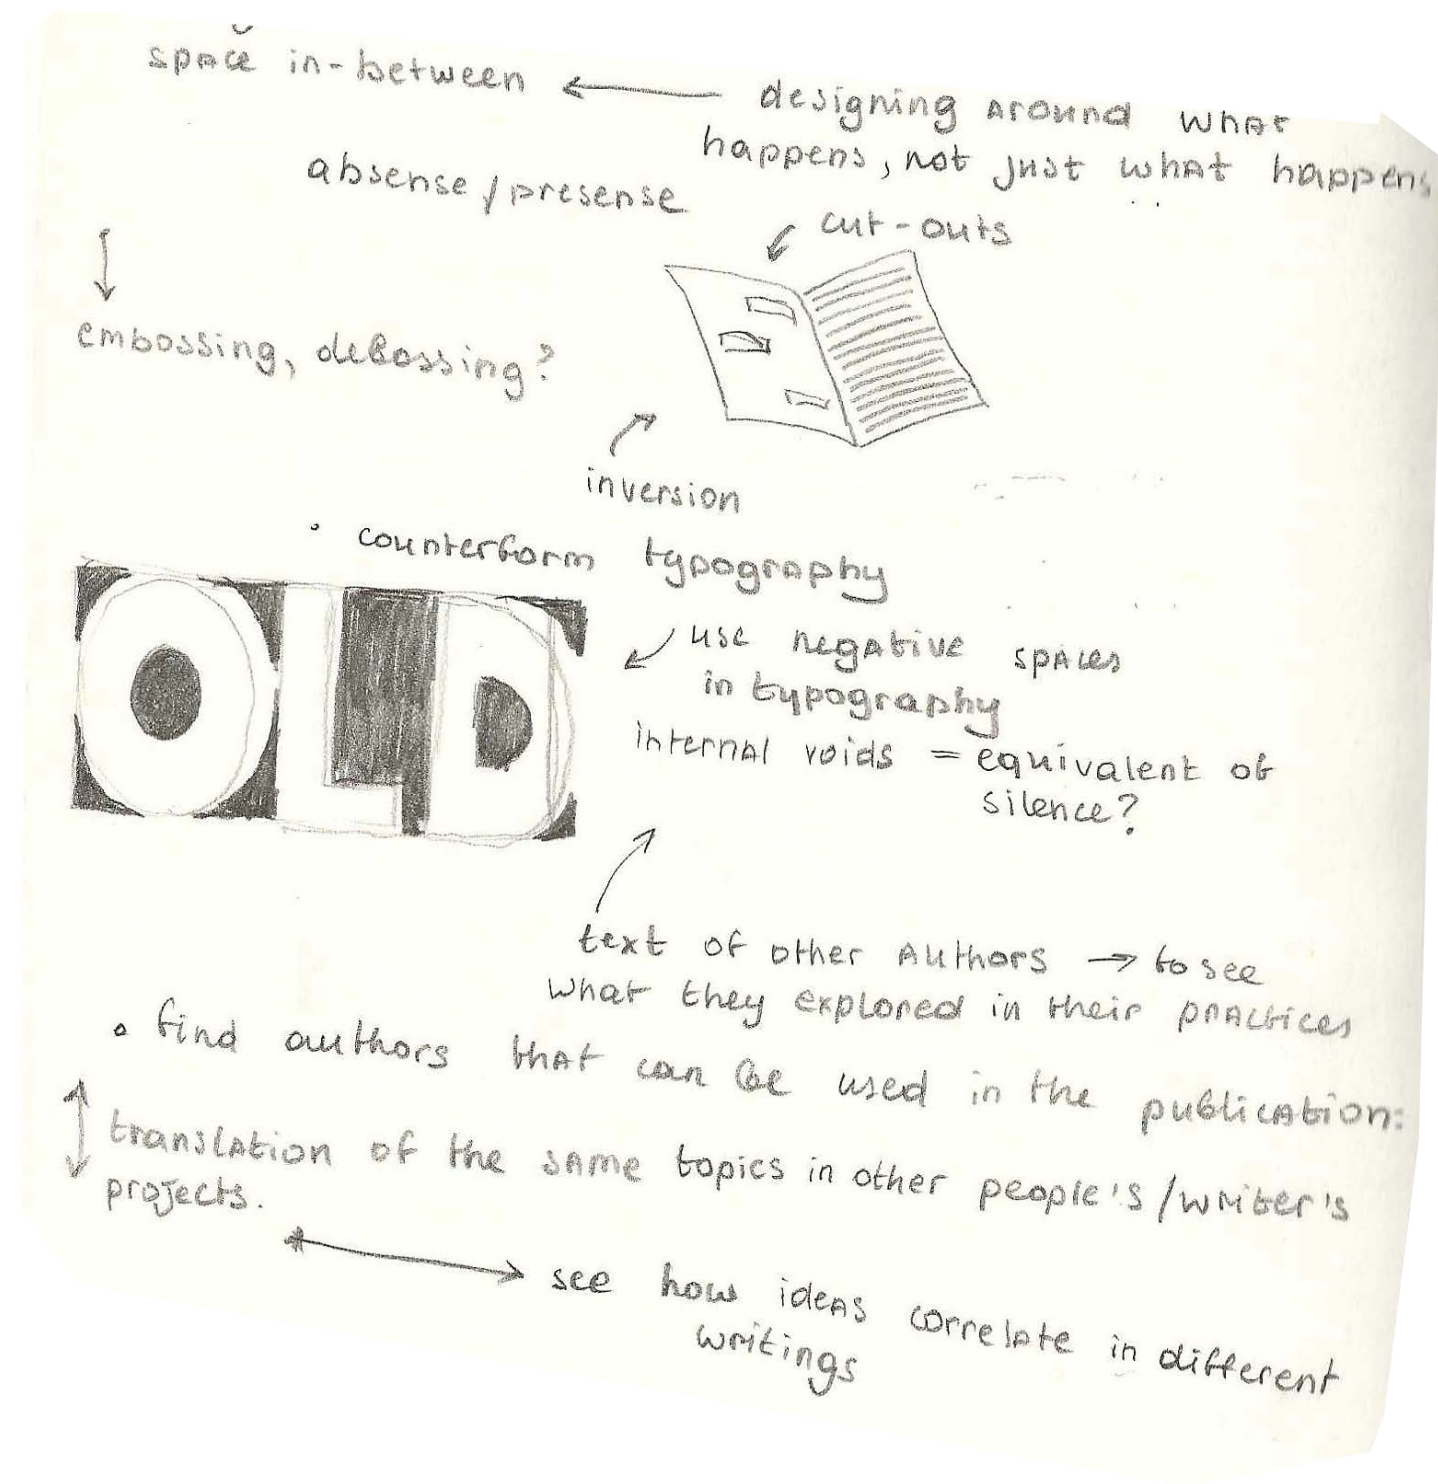 space in-between ← designing around what
happens, not just what happens
absense / presense
cut-outs
embossing, debossing?
inversion
• counterform typography
OLD
use negative spaces
in typography
internal voids = equivalent of
silence?
text of other authors → to see
what they explored in their practices
• find authors that can be used in the publication:
translation of the same topics in other people's / writer's
projects.
see how ideas correlate in different
writings